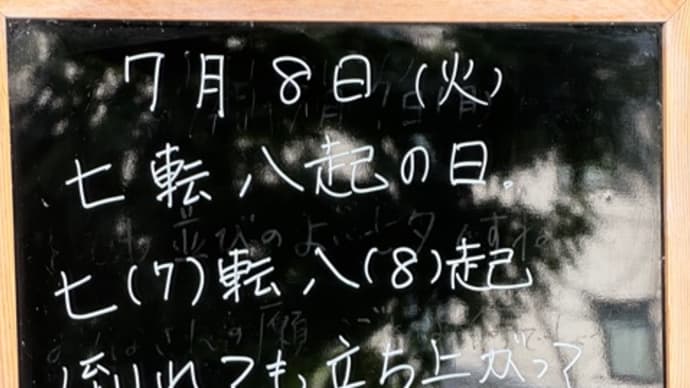 7月8日(火)
七転八起の日。
七(7)転八(8)起
倒れても立ち上がって